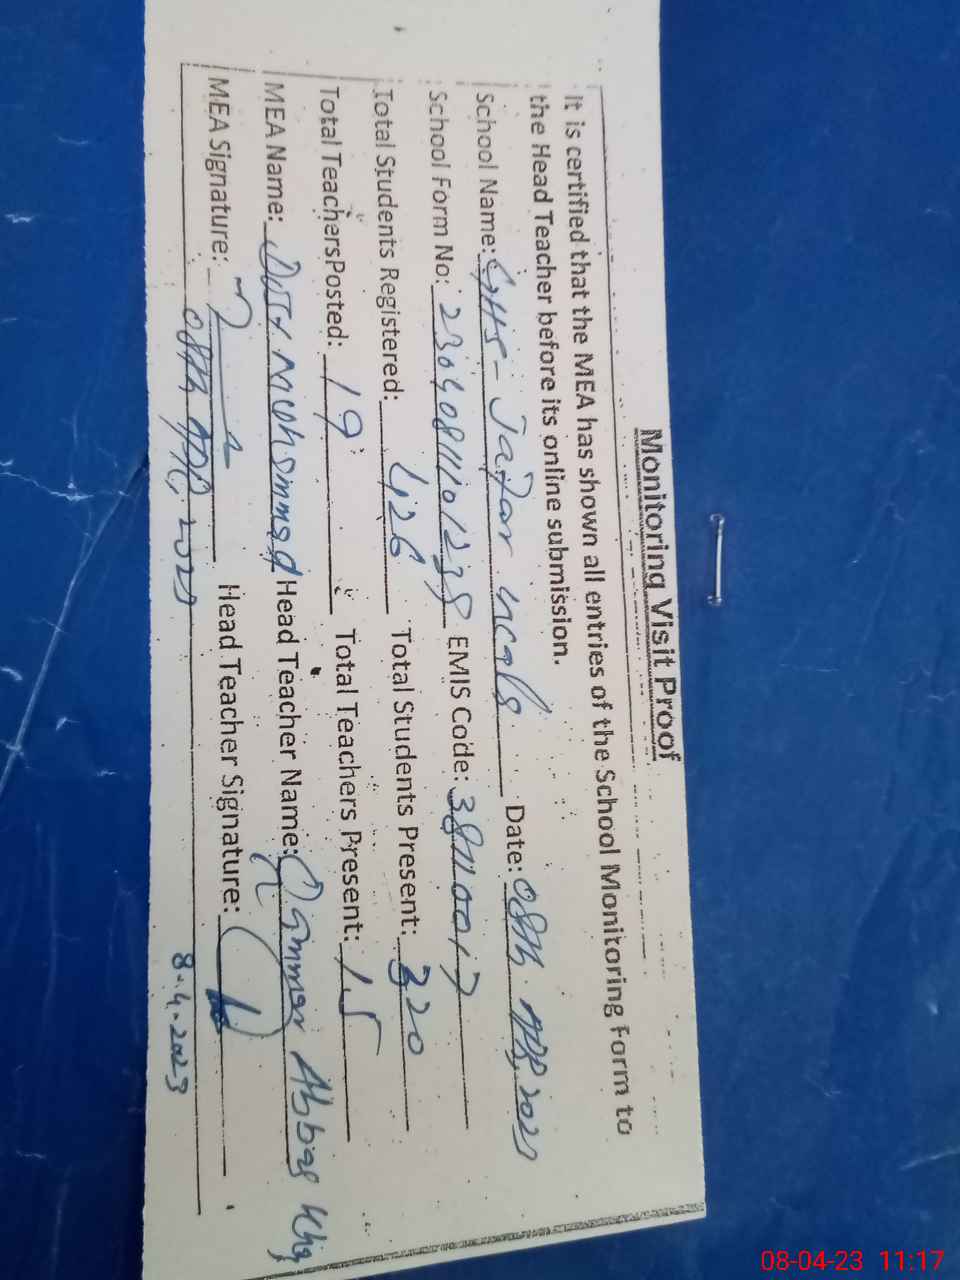 Monitoring Visit Proof
It is certified that the MEA has shown all entries of the School Monitoring Form to
the Head Teacher before its online submission.
School Name: GHS- Jafar Date: 08th. APR, 2023
School Form No: EMIS Code: 38110017
Total Students Registered: 426 Total Students Present: 320
Total TeachersPosted: 19 Total Teachers Present: 15
MEA Name: Muhammad Head Teacher Name: Qammar Abbas
MEA Signature: Head Teacher Signature:
08th APR, 2023 8.4.2023
08-04-23 11:17